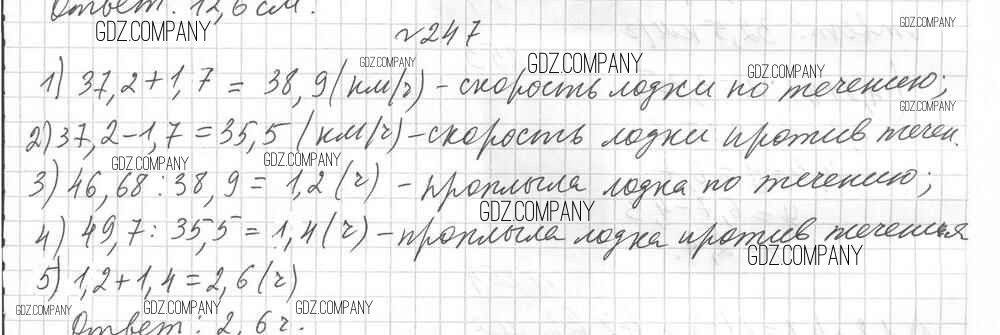 Ответ: 12,6 см.
GDZ.COMPANY GDZ.COMPANY
№247
GDZ.COMPANY GDZ.COMPANY GDZ.COMPANY
1) 37,2+1,7 = 38,9 (км/ч) - скорость лодки по течению;
GDZ.COMPANY
2) 37,2-1,7=35,5 (км/ч) - скорость лодки против течен.
GDZ.COMPANY GDZ.COMPANY
3) 46,68 : 38,9 = 1,2 (ч) - проплыла лодка по течению;
GDZ.COMPANY
4) 49,7 : 35,5 = 1,4 (ч) - проплыла лодка против течения
GDZ.COMPANY
5) 1,2+1,4=2,6 (ч)
GDZ.COMPANY GDZ.COMPANY GDZ.COMPANY
Ответ: 2,6 ч.